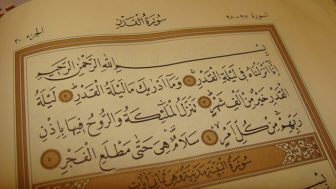 الجزء ٣٠ سورة القرآن سورة ٩٧-٩٨
بِسْمِ اللهِ الرَّحْمٰنِ الرَّحِيمِ
إِنَّا أَنْزَلْنَاهُ فِي لَيْلَةِ الْقَدْرِ ١ وَمَا أَدْرٰيكَ مَا لَيْلَةُ الْقَدْرِ ٢ لَيْلَةُ
الْقَدْرِ خَيْرٌ مِنْ أَلْفِ شَهْرٍ ٣ تَنَزَّلُ الْمَلٰئِكَةُ وَالرُّوحُ فِيهَا بِإِذْنِ
رَبِّهِمْ مِنْ كُلِّ أَمْرٍ ٤ سَلَامٌ هِيَ حَتّٰى مَطْلَعِ الْفَجْرِ ٥
سُورَةُ الْبَيِّنَةِ مدنية وهي ثمان آيات